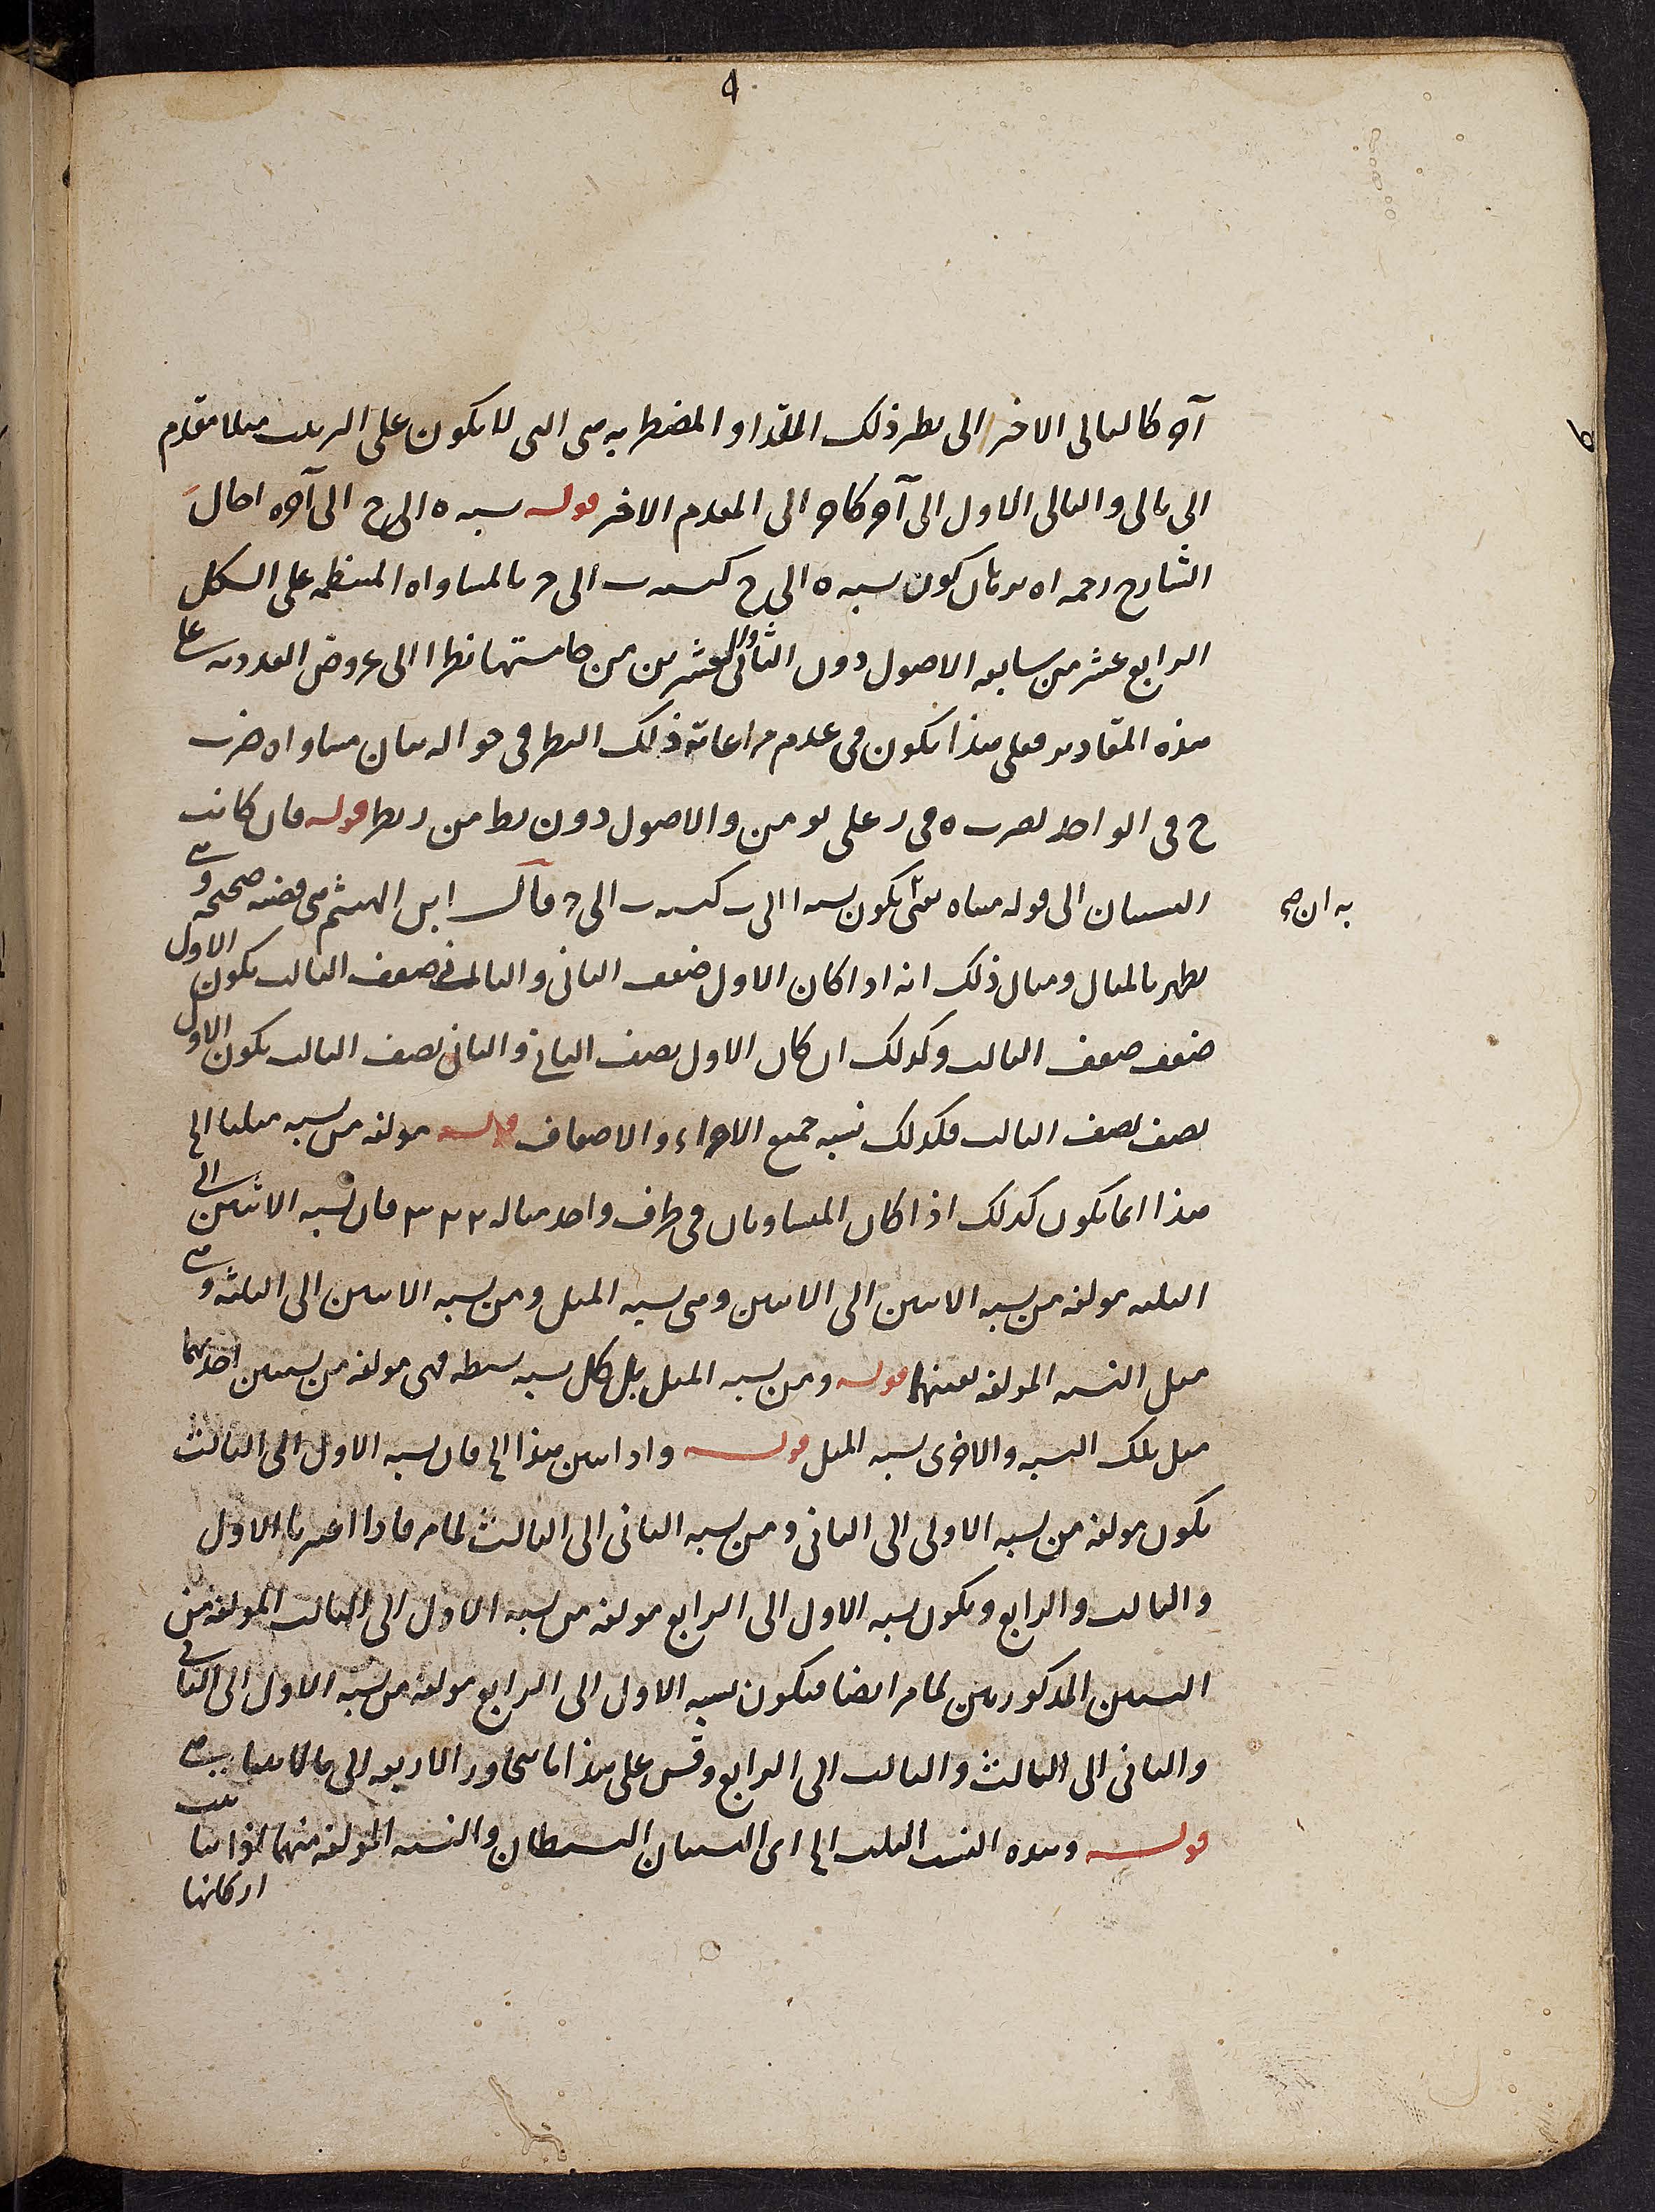 آخر كالتالى الاخر الى نظير ذلك المقدار والمضطربه هى التى لا يكون على الترتيب مثلا مقدم
الى تالى والتالى الاول الى آخر كاخر الى المقدم الاخر قوله نسبه ه الى ح الى آخره احال
الشارح رحمه اه برهان كون نسبه ه الى ح كنسبه ب الى د بالمساواه المنتظمه على الشكل
الرابع عشر من سابعه الاصول دون الثانى والعشرين من خامستها نظرا الى عروض العدديه على
هذه المقادير فعلى هذا يكون فى عدم مراعاته ذلك النظر فى حواله بيان مساواه ضرب
ح فى الواحد لضرب ه فى ر على من والاصول دون يط من ر نظر قوله فان كانت
النسبتان الى قوله مثناه حتى يكون نسبه ا الى ب كنسبه ب الى ح قال ابن الهيثم هى قضيه صحيحه وهى
به ان صح
يظهر بالمثال ومثال ذلك انه اذا كان الاول ضعف الثانى والثانى ضعف الثالث يكون الاول
ضعف ضعف الثالث وكذلك ان كان الاول نصف الثانى والثانى نصف الثالث يكون الاول
نصف نصف الثالث فكذلك نسبه جميع الاجزاء والاضعاف قوله مولفه من نسبه مثلها الخ
هذا انما يكون كذلك اذا كان المتساويان فى طرف واحد مثاله ٢ ٢ ٣ فان نسبه الاثنين الى
الثلثه مولفه من نسبه الاثنين الى الاثنين وهى نسبه المثل ومن نسبه الاثنين الى الثلثه وهى
مثل النسبه المولفه بعينها قوله ومن نسبه المثل بل كل نسبه بسيطه فهى مولفه من نسبتين احديهما
مثل تلك النسبه والاخرى نسبه المثل قوله واذا تبين هذا الخ فان نسبه الاول الى الثالث
يكون مولفه من نسبه الاول الى الثانى ومن نسبه الثانى الى الثالث لما مر فاذا اعتبرنا الاول
والثالث والرابع ويكون نسبه الاول الى الرابع مولفه من نسبه الاول الى الثالث المولفه من
النسبتين المذكورتين لما مر ايضا فيكون نسبه الاول الى الرابع مولفه من نسبه الاول الى الثانى
والثانى الى الثالث والثالث الى الرابع وقس على هذا ما تجاوز الاربعه الى ما لا يتناهى
قوله وهذه النسب الثلث الخ اى النسبتان البسيطتان والنسبه المولفه منهما اذا تناسبت
اركانها